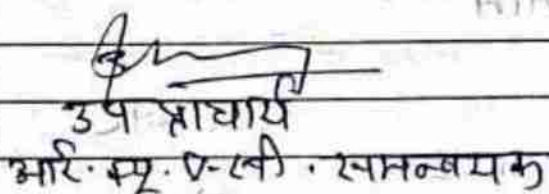 उप प्राचार्य
आई. क्यू. ए. सी. समन्वयक